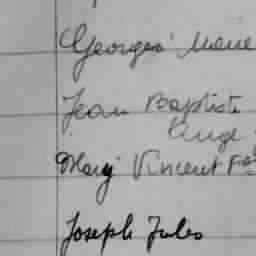 Georges Marie
Jean Baptiste
Ange
Mary Vincent
Joseph Jules